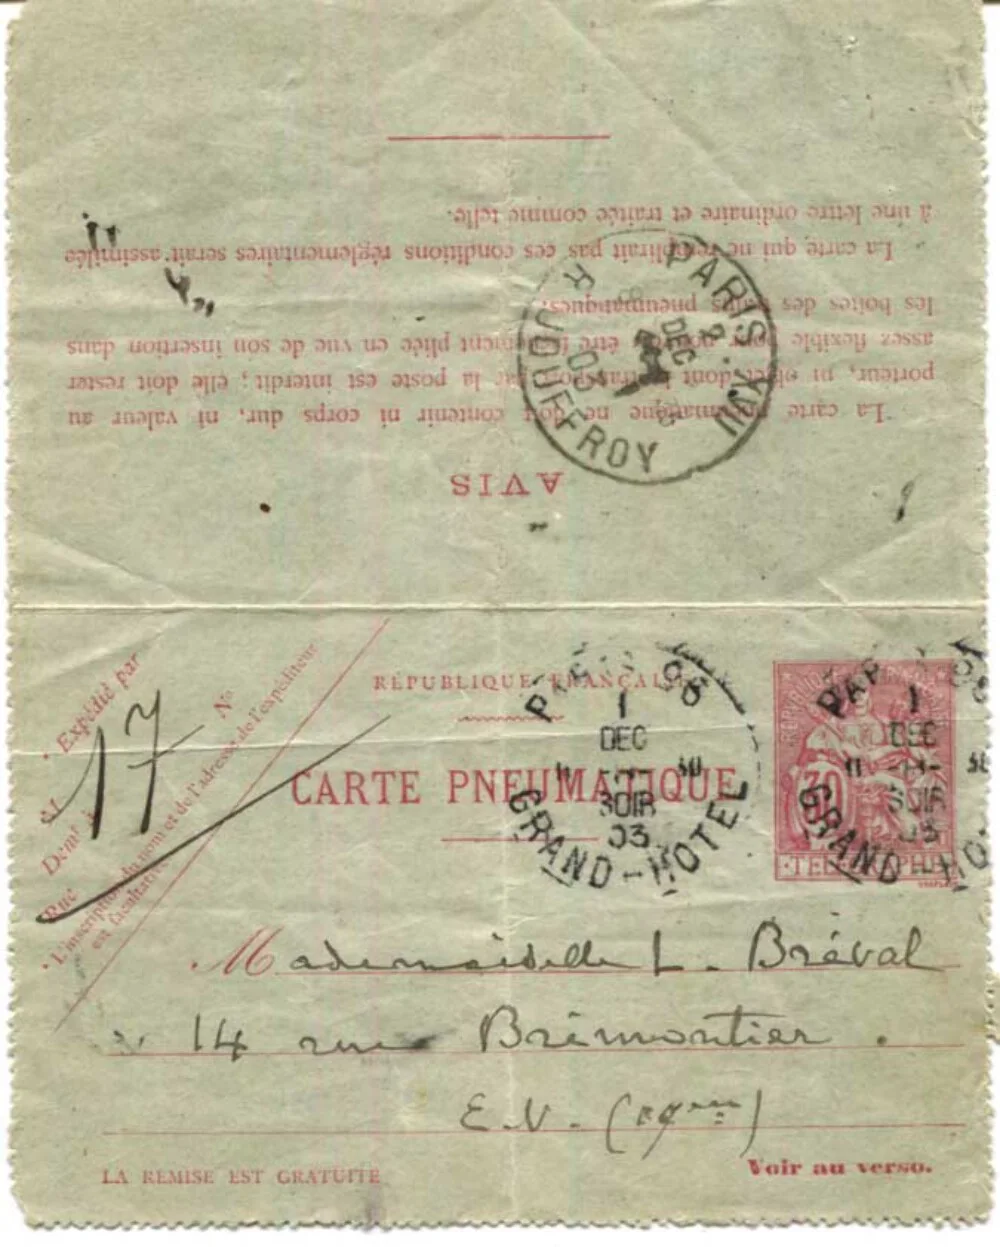 AVIS
La carte pneumatique ne doit contenir ni corps dur, ni valeur au
porteur, ni objet dont la par la poste est interdit ; elle doit rester
assez flexible pour pouvoir être facilement pliée en vue de son insertion dans
les boîtes des tubes pneumatiques.
La carte qui ne remplirait pas ces conditions réglementaires serait assimilée
à une lettre ordinaire et traitée comme telle.
PARIS XVII
R. JOUFFROY
DEC
Expédié par
M
Dem.t à
Rue
N.o
L'inscription du nom et de l'adresse de l'expéditeur
est facultative.
17
RÉPUBLIQUE FRANÇAISE
CARTE PNEUMATIQUE
PARIS 96
1
DEC
11 30
SOIR
03
GRAND-HOTEL
30
TELEGRAPHE
PARIS 96
1
DEC
11 30
SOIR
03
GRAND-HO
Mademoiselle L. Bréval
14 rue Brémontier.
E.V. (17eme)
LA REMISE EST GRATUITE
Voir au verso.